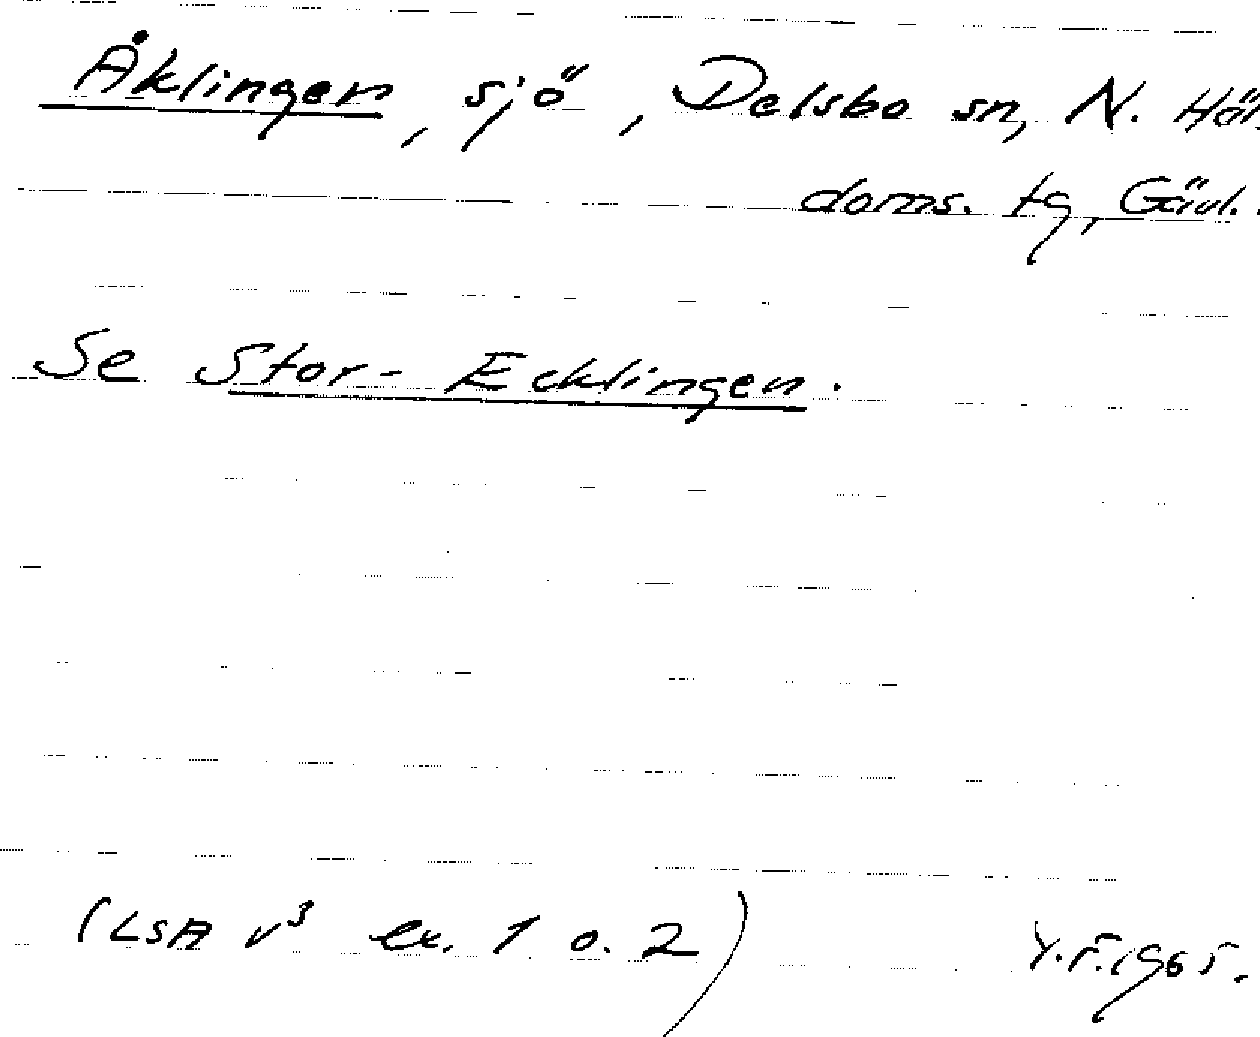 Åklingen, sjö, Delsbo sn, N. Häl
doms. tg, Gävl.
Se Stor-Ecklingen.
(LSA v³ ex. 1 o. 2) Y.F. 1965.